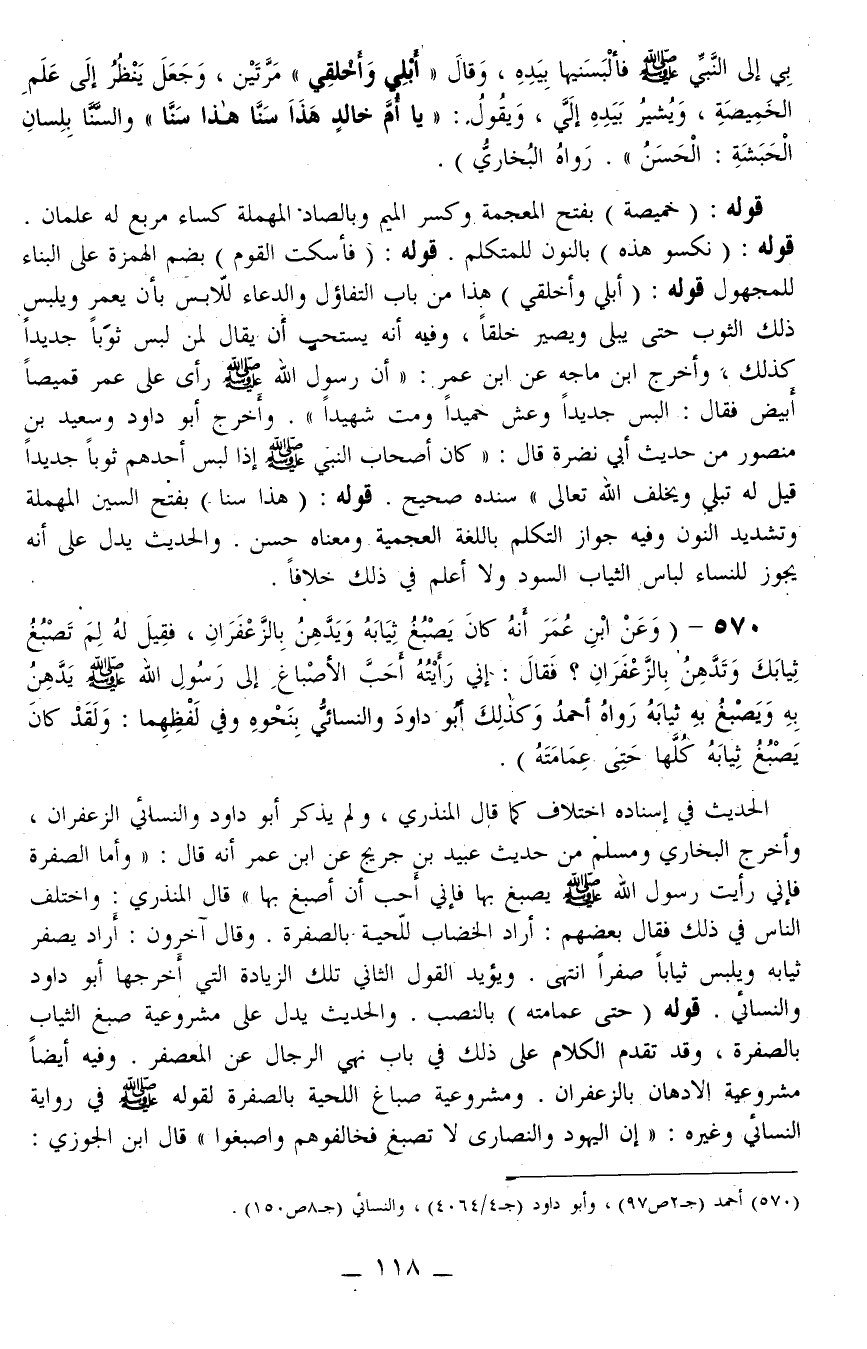 بِي إلى النَّبيِّ ﷺ فألْبَسَنيها بِيَدِهِ ، وَقالَ « أَبْلِي وَأَخْلِقِي » مَرَّتَيْن ، وَجَعَلَ يَنْظُرُ إلَى عَلَمِ
الخَمِيصَةِ ، وَيُشيرُ بَيَدِهِ إلَيَّ ، وَيقُولُ : « يا أُمَّ خالدٍ هَذَا سَنَّا هٰذا سَنَّا » والسنَّا بِلسانِ
الْحَبَشَةِ : الْحَسَنُ » . رَواهُ البُخاريُّ ) .
قوله : ( خميصة ) بفتح المعجمة وكسر الميم وبالصاد المهملة كساء مربع له علمان .
قوله : ( نكسو هذه ) بالنون للمتكلم . قوله : ( فأسكت القوم ) بضم الهمزة على البناء
للمجهول قوله : ( أبلي وأخلقي ) هذا من باب التفاؤل والدعاء للّابس بأن يعمر ويلبس
ذلك الثوب حتى يبلى ويصير خلقاً ، وفيه أنه يستحب أن يقال لمن لبس ثوباً جديداً
كذلك ، وأخرج ابن ماجه عن ابن عمر : « أن رسول الله ﷺ رأى على عمر قميصاً
أبيض فقال : البس جديداً وعش حميداً ومت شهيداً » . وأخرج أبو داود وسعيد بن
منصور من حديث أبي نضرة قال : « كان أصحاب النبي ﷺ إذا لبس أحدهم ثوباً جديداً
قيل له تبلي ويخلف الله تعالى » سنده صحيح . قوله : ( هذا سنا ) بفتح السين المهملة
وتشديد النون وفيه جواز التكلم باللغة العجمية ومعناه حسن . والحديث يدل على أنه
يجوز للنساء لباس الثياب السود ولا أعلم في ذلك خلافاً .
٥٧٠ – ( وَعَنْ ابْنِ عُمَرَ أَنهُ كانَ يَصْبُغُ ثِيَابَهُ وَيَدَّهِنُ بِالزَّعْفَرَانِ ، فقِيلَ لهُ لِمَ تَصْبُغُ
ثِيابَكَ وَتَدَّهِنُ بِالزَّعْفَرَانِ ؟ فَقالَ : إني رَأيْتُهُ أحَبَّ الأصْباغِ إلى رَسُولِ الله ﷺ يَدَّهِنُ
بِهِ وَيَصْبغُ بهِ ثيابَهُ رَواهُ أحمدُ وَكذٰلِكَ أبُو داودَ والنسائيُّ بِنَحْوِهِ وفي لَفْظِهِما : وَلَقَدْ كانَ
يَصْبُغُ ثِيابَهُ كُلَّها حَتِىَ عِمَامَتَهُ ) .
الحديث في إسناده اختلاف كما قال المنذري ، ولم يذكر أبو داود والنسائي الزعفران ،
وأخرج البخاري ومسلم من حديث عبيد بن جريج عن ابن عمر أنه قال : « وأما الصفرة
فإني رأيت رسول الله ﷺ يصبغ بها فإني أحب أن أصبغ بها » قال المنذري : واختلف
الناس في ذلك فقال بعضهم : أراد الخضاب للّحية بالصفرة . وقال آخرون : أراد يصفر
ثيابه ويلبس ثياباً صفراً انتهى . ويؤيد القول الثاني تلك الزيادة التي أخرجها أبو داود
والنسائي . قوله ( حتى عمامته ) بالنصب . والحديث يدل على مشروعية صبغ الثياب
بالصفرة ، وقد تقدم الكلام على ذلك في باب نهي الرجال عن المعصفر . وفيه أيضاً
مشروعية الادهان بالزعفران . ومشروعية صباغ اللحية بالصفرة لقوله ﷺ في رواية
النسائي وغيره : « إن اليهود والنصارى لا تصبغ فخالفوهم واصبغوا » قال ابن الجوزي :
(٥٧٠) أحمد (جـ٢ص٩٧) ، وأبو داود (جـ٤/٤٠٦٤) ، والنسائي (جـ٨ص١٥٠) .
– ١١٨ –